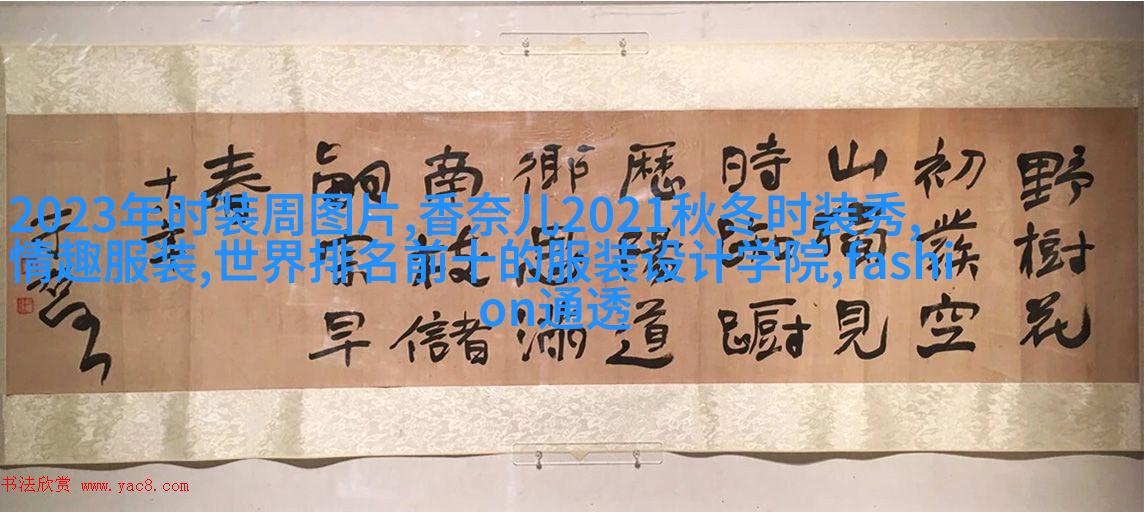 野樹花
初發空
山獨見
時踟躕
歷陽道
鄉思滿
南枝儲
嗣宗早
春
2023年时装周图片,香奈儿2021秋冬时装秀,
情趣服装,世界排名前十的服装设计学院,fashi
on通透
书法欣赏 www.yac8.com